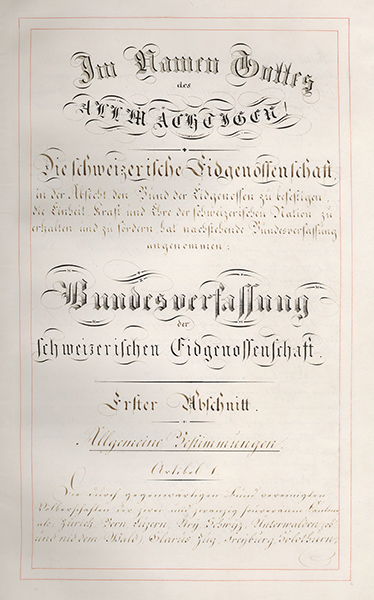 Im Namen Gottes
des
ALLMÄCHTIGEN!
Die schweizerische Eidgenossenschaft,
in der Absicht den Bund der Eidgenossen zu befestigen,
die Einheit Kraft und Ehre der schweizerischen Nation zu
erhalten und zu fördern hat nachstehende Bundesverfassung
angenommen:
Bundesverfassung
der
schweizerischen Eidgenossenschaft.
Erster Abschnitt.
Allgemeine Bestimmungen.
Artikel 1
Die durch gegenwärtigen Bund vereinigten
Völkerschaften der zwei und zwanzig souveränen Kantone
als: Zürich Bern Luzern, Ury, Schwyz, Unterwalden, ob
und nid dem Wald), Glarus Zug, Freyburg Solothurn,